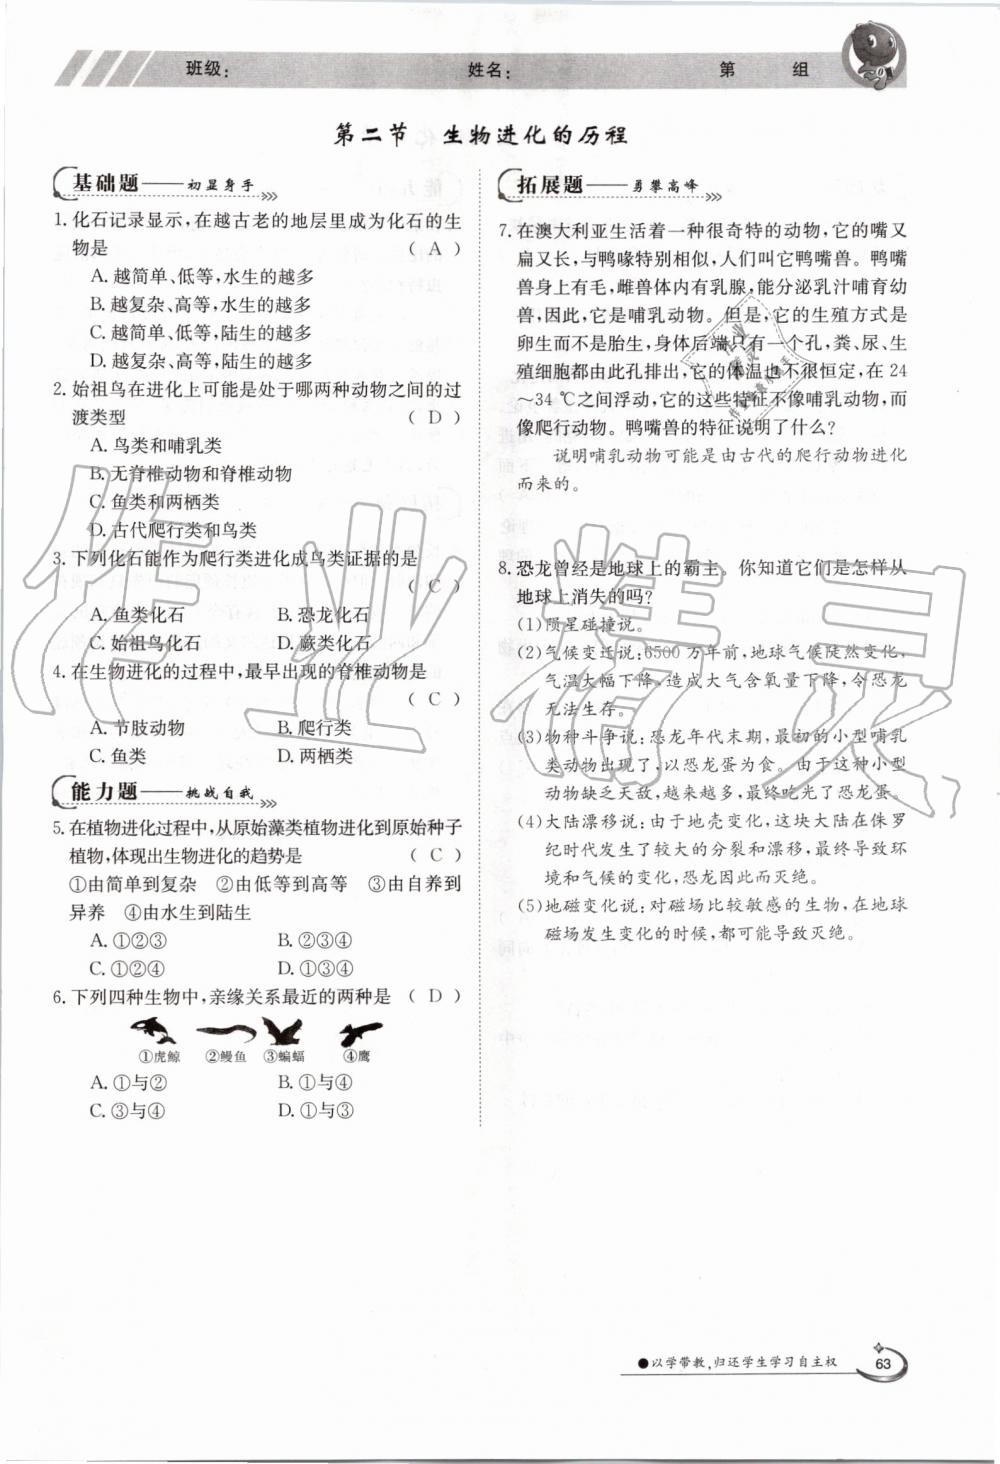 班级：　姓名：　第　组
第二节　生物进化的历程
基础题——初显身手
1.化石记录显示,在越古老的地层里成为化石的生
物是　(　A　)
A.越简单、低等,水生的越多
B.越复杂、高等,水生的越多
C.越简单、低等,陆生的越多
D.越复杂、高等,陆生的越多
2.始祖鸟在进化上可能是处于哪两种动物之间的过
渡类型　(　D　)
A.鸟类和哺乳类
B.无脊椎动物和脊椎动物
C.鱼类和两栖类
D.古代爬行类和鸟类
3.下列化石能作为爬行类进化成鸟类证据的是
(　C　)
A.鱼类化石　B.恐龙化石
C.始祖鸟化石　D.蕨类化石
4.在生物进化的过程中,最早出现的脊椎动物是
(　C　)
A.节肢动物　B.爬行类
C.鱼类　D.两栖类
能力题——挑战自我
5.在植物进化过程中,从原始藻类植物进化到原始种子
植物,体现出生物进化的趋势是　(　C　)
①由简单到复杂　②由低等到高等　③由自养到
异养　④由水生到陆生
A.①②③　B.②③④
C.①②④　D.①③④
6.下列四种生物中,亲缘关系最近的两种是　(　D　)
①虎鲸　②鳗鱼　③蝙蝠　④鹰
A.①与②　B.①与④
C.③与④　D.①与③
拓展题——勇攀高峰
7.在澳大利亚生活着一种很奇特的动物,它的嘴又
扁又长,与鸭喙特别相似,人们叫它鸭嘴兽。鸭嘴
兽身上有毛,雌兽体内有乳腺,能分泌乳汁哺育幼
兽,因此,它是哺乳动物。但是,它的生殖方式是
卵生而不是胎生,身体后端只有一个孔,粪、尿、生
殖细胞都由此孔排出,它的体温也不很恒定,在24
～34 ℃之间浮动,它的这些特征不像哺乳动物,而
像爬行动物。鸭嘴兽的特征说明了什么?
说明哺乳动物可能是由古代的爬行动物进化
而来的。
8.恐龙曾经是地球上的霸主。你知道它们是怎样从
地球上消失的吗?
(1)陨星碰撞说。
(2)气候变迁说:6500万年前,地球气候陡然变化,
气温大幅下降,造成大气含氧量下降,令恐龙
无法生存。
(3)物种斗争说:恐龙年代末期,最初的小型哺乳
类动物出现了,以恐龙蛋为食。由于这种小型
动物缺乏天敌,越来越多,最终吃光了恐龙蛋。
(4)大陆漂移说:由于地壳变化,这块大陆在侏罗
纪时代发生了较大的分裂和漂移,最终导致环
境和气候的变化,恐龙因此而灭绝。
(5)地磁变化说:对磁场比较敏感的生物,在地球
磁场发生变化的时候,都可能导致灭绝。
●以学带教,归还学生学习自主权　63
作业精灵